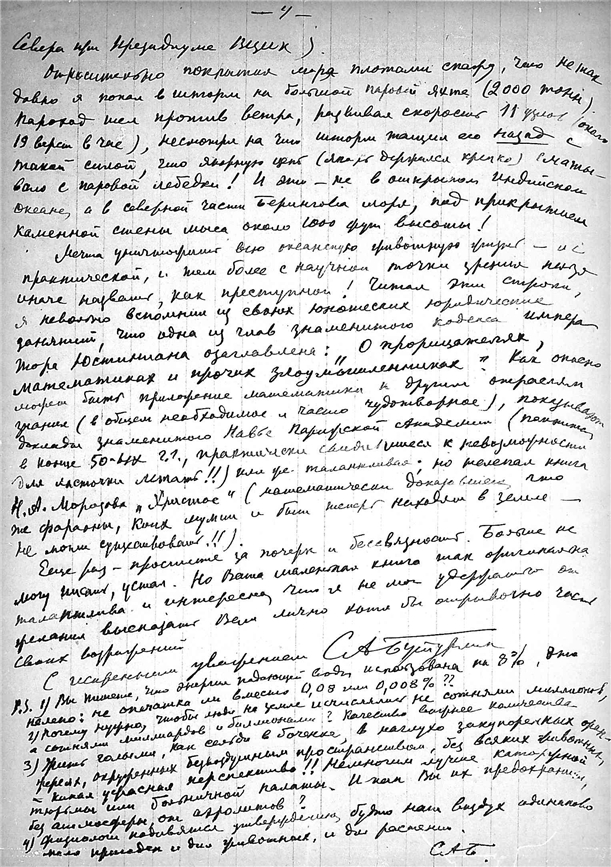 — 4 —
Севера при Президиуме ВЦИК).
Относительно покрытия моря плотами скажу, что не так
давно я попал в шторм на большой паровой яхте (2000 тонн).
Пароход шел против ветра, развивая скорость 11 узлов (около
19 верст в час), несмотря на что шторм тащил его назад с
такой силой, что якорную цепь (якорь держался крепко) сматы-
вало с паровой лебедки! И это — не в открытом Индийском
океане, а в северной части Берингова моря, под прикрытием
каменной стены мыса около 1000 фут высоты!
Мечта уничтожить всю океанскую животную жизнь — и с
практической, и тем более с научной точки зрения нельзя
иначе назвать, как преступной! Читая эти строки,
я невольно вспомнил из своих юношеских юридических
занятий, что одна из глав знаменитого кодекса импера-
тора Юстиниана озаглавлена: „О прорицателях,
математиках и прочих злоумышленниках". Как опасно
может быть приложение математики к другим отраслям
знания (в общем необходимое и часто чудотворное), показывают
доклады знаменитого Навье Парижской Академии
в конце 50-ых г.г., практически сводившиеся к невозможности
для ласточки летать!!) или же талантливая, но нелепая книга
Н. А. Морозова „Христос" (математически доказавшая, что
же фараоны, коих мумии и были теперь находят в земле —
не могли существовать!!).
Еще раз — простите за почерк и бессвязность. Больше не
могу писать, устал. Но Ваша маленькая книга так оригинальна
талантлива и интересна, что я не мог удержаться от
желания высказать Вам лично хотя бы отрывочно часть
своих возражений
С искренним уважением С А Бутурлин
P.S. 1) Вы пишете, что энергия падающей воды использована на 8%, это
нелепо: не опечатка ли вместо 0,08 или 0,008%??
2) Почему нужно, чтобы людей на земле исчислялись не сотнями миллионов,
а сотнями миллиардов и биллионами? Качество важнее количества.
3) Жить голыми, как сельди в бочонке, в наглухо закупоренных оран-
жереях, окруженных безвоздушным пространством, без всяких животных,
— какая ужасная перспектива!! Немногим лучше каторжной
тюрьмы или больничной палаты. И как Вы их предохраните,
без атмосферы, от аэролитов?
4) Физиологи подивятся утверждению, будто наш воздух одинаково
мало пригоден и для животных, и для растений.
САБ